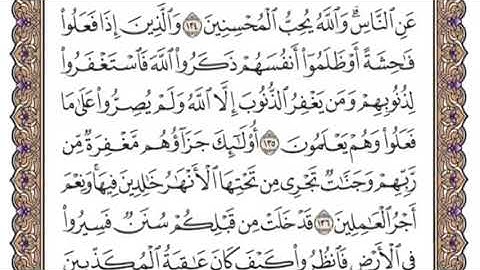 عَنِ ٱلنَّاسِۗ وَٱللَّهُ يُحِبُّ ٱلْمُحْسِنِينَ ١٣٤ وَٱلَّذِينَ إِذَا فَعَلُوا۟
فَٰحِشَةً أَوْ ظَلَمُوٓا۟ أَنفُسَهُمْ ذَكَرُوا۟ ٱللَّهَ فَٱسْتَغْفَرُوا۟
لِذُنُوبِهِمْ وَمَن يَغْفِرُ ٱلذُّنُوبَ إِلَّا ٱللَّهُ وَلَمْ يُصِرُّوا۟ عَلَىٰ مَا
فَعَلُوا۟ وَهُمْ يَعْلَمُونَ ١٣٥ أُو۟لَٰٓئِكَ جَزَآؤُهُم مَّغْفِرَةٌ مِّن
رَّبِّهِمْ وَجَنَّٰتٌ تَجْرِى مِن تَحْتِهَا ٱلْأَنْهَٰرُ خَٰلِدِينَ فِيهَاۚ وَنِعْمَ
أَجْرُ ٱلْعَٰمِلِينَ ١٣٦ قَدْ خَلَتْ مِن قَبْلِكُمْ سُنَنٌ فَسِيرُوا۟
فِى ٱلْأَرْضِ فَٱنظُرُوا۟ كَيْفَ كَانَ عَٰقِبَةُ ٱلْمُكَذِّبِينَ